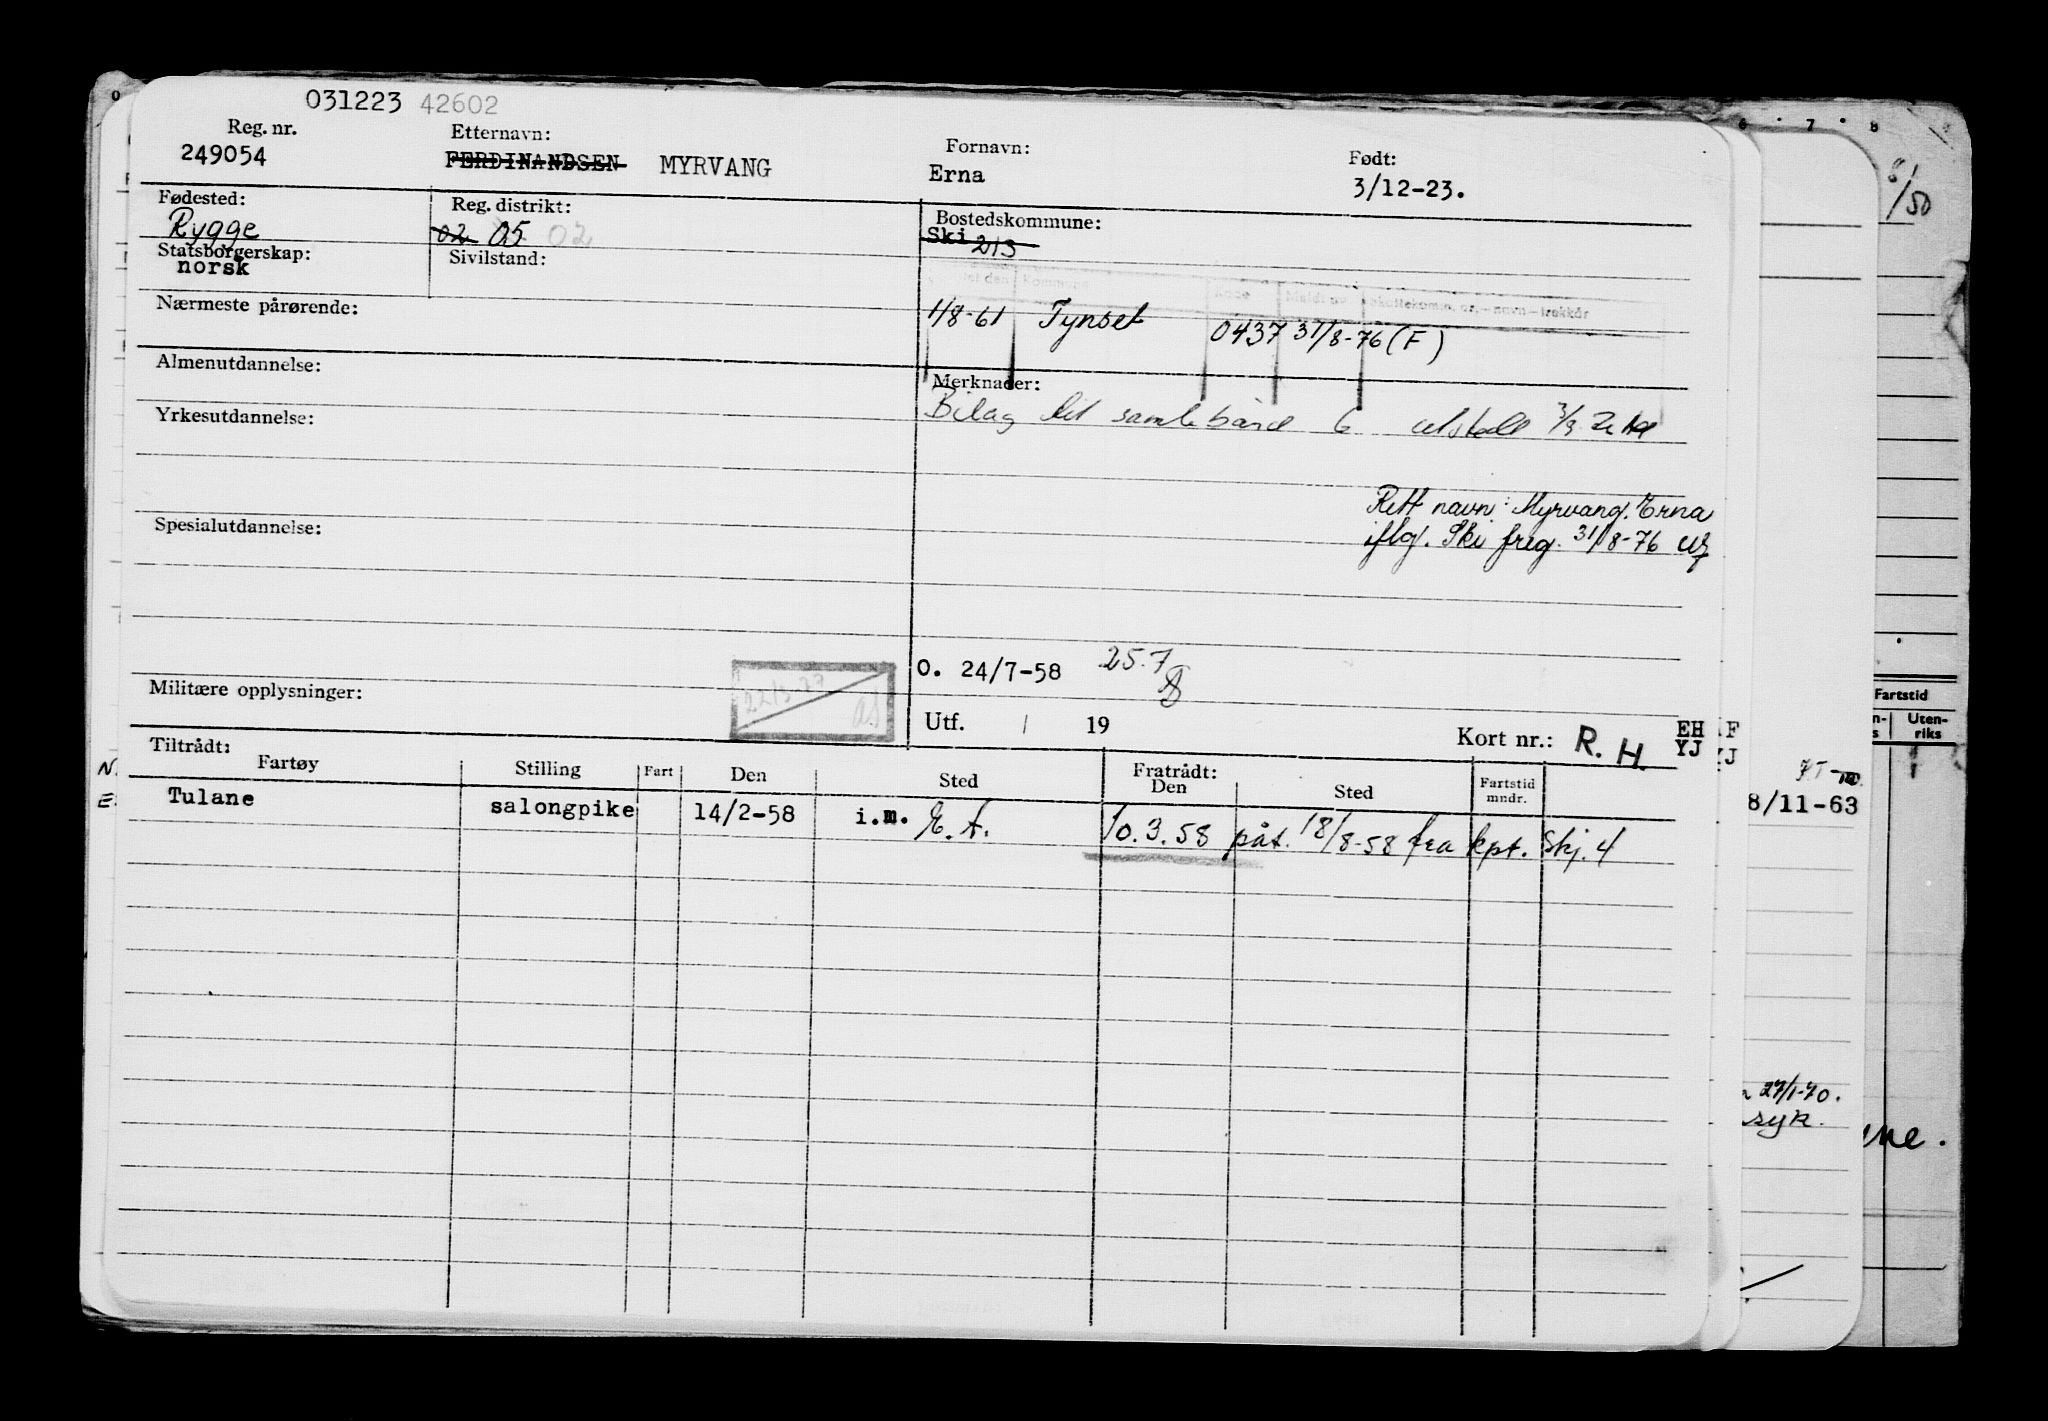 031223 42602
Reg. nr. Etternavn: Fornavn: Født:
249054 FERDINANDSEN MYRVANG Erna 3/12-23.
Fødested: Reg. distrikt: Bostedskommune:
Rygge 02 05 02 Ski 213
Statsborgerskap: Sivilstand:
norsk
Nærmeste pårørende:
1/8-61 Tynset 0437 31/8-76 (F)
Almenutdannelse: Merknader:
Bilag til samlebånd 6 utstedt
Yrkesutdannelse:
Rett navn: Myrvang, Erna
iflg. Ski freg. 31/8-76
Spesialutdannelse:
O. 24/7-58 25.7
Militære opplysninger:
Utf. / 19 Kort nr.: R. H. EH
YJ
Tiltrådt: Fratrådt:
Fartøy Stilling Fart Den Sted Den Sted Fartstid mndr.
Tulane salongpike 14/2-58 i.m. E. A. 10.3.58 påt. 18/8-58 fra kpt. Skj. 4
6 7 8
/50
Fartstid
Uten-
riks
8/11-63
27/1-70.
syk.